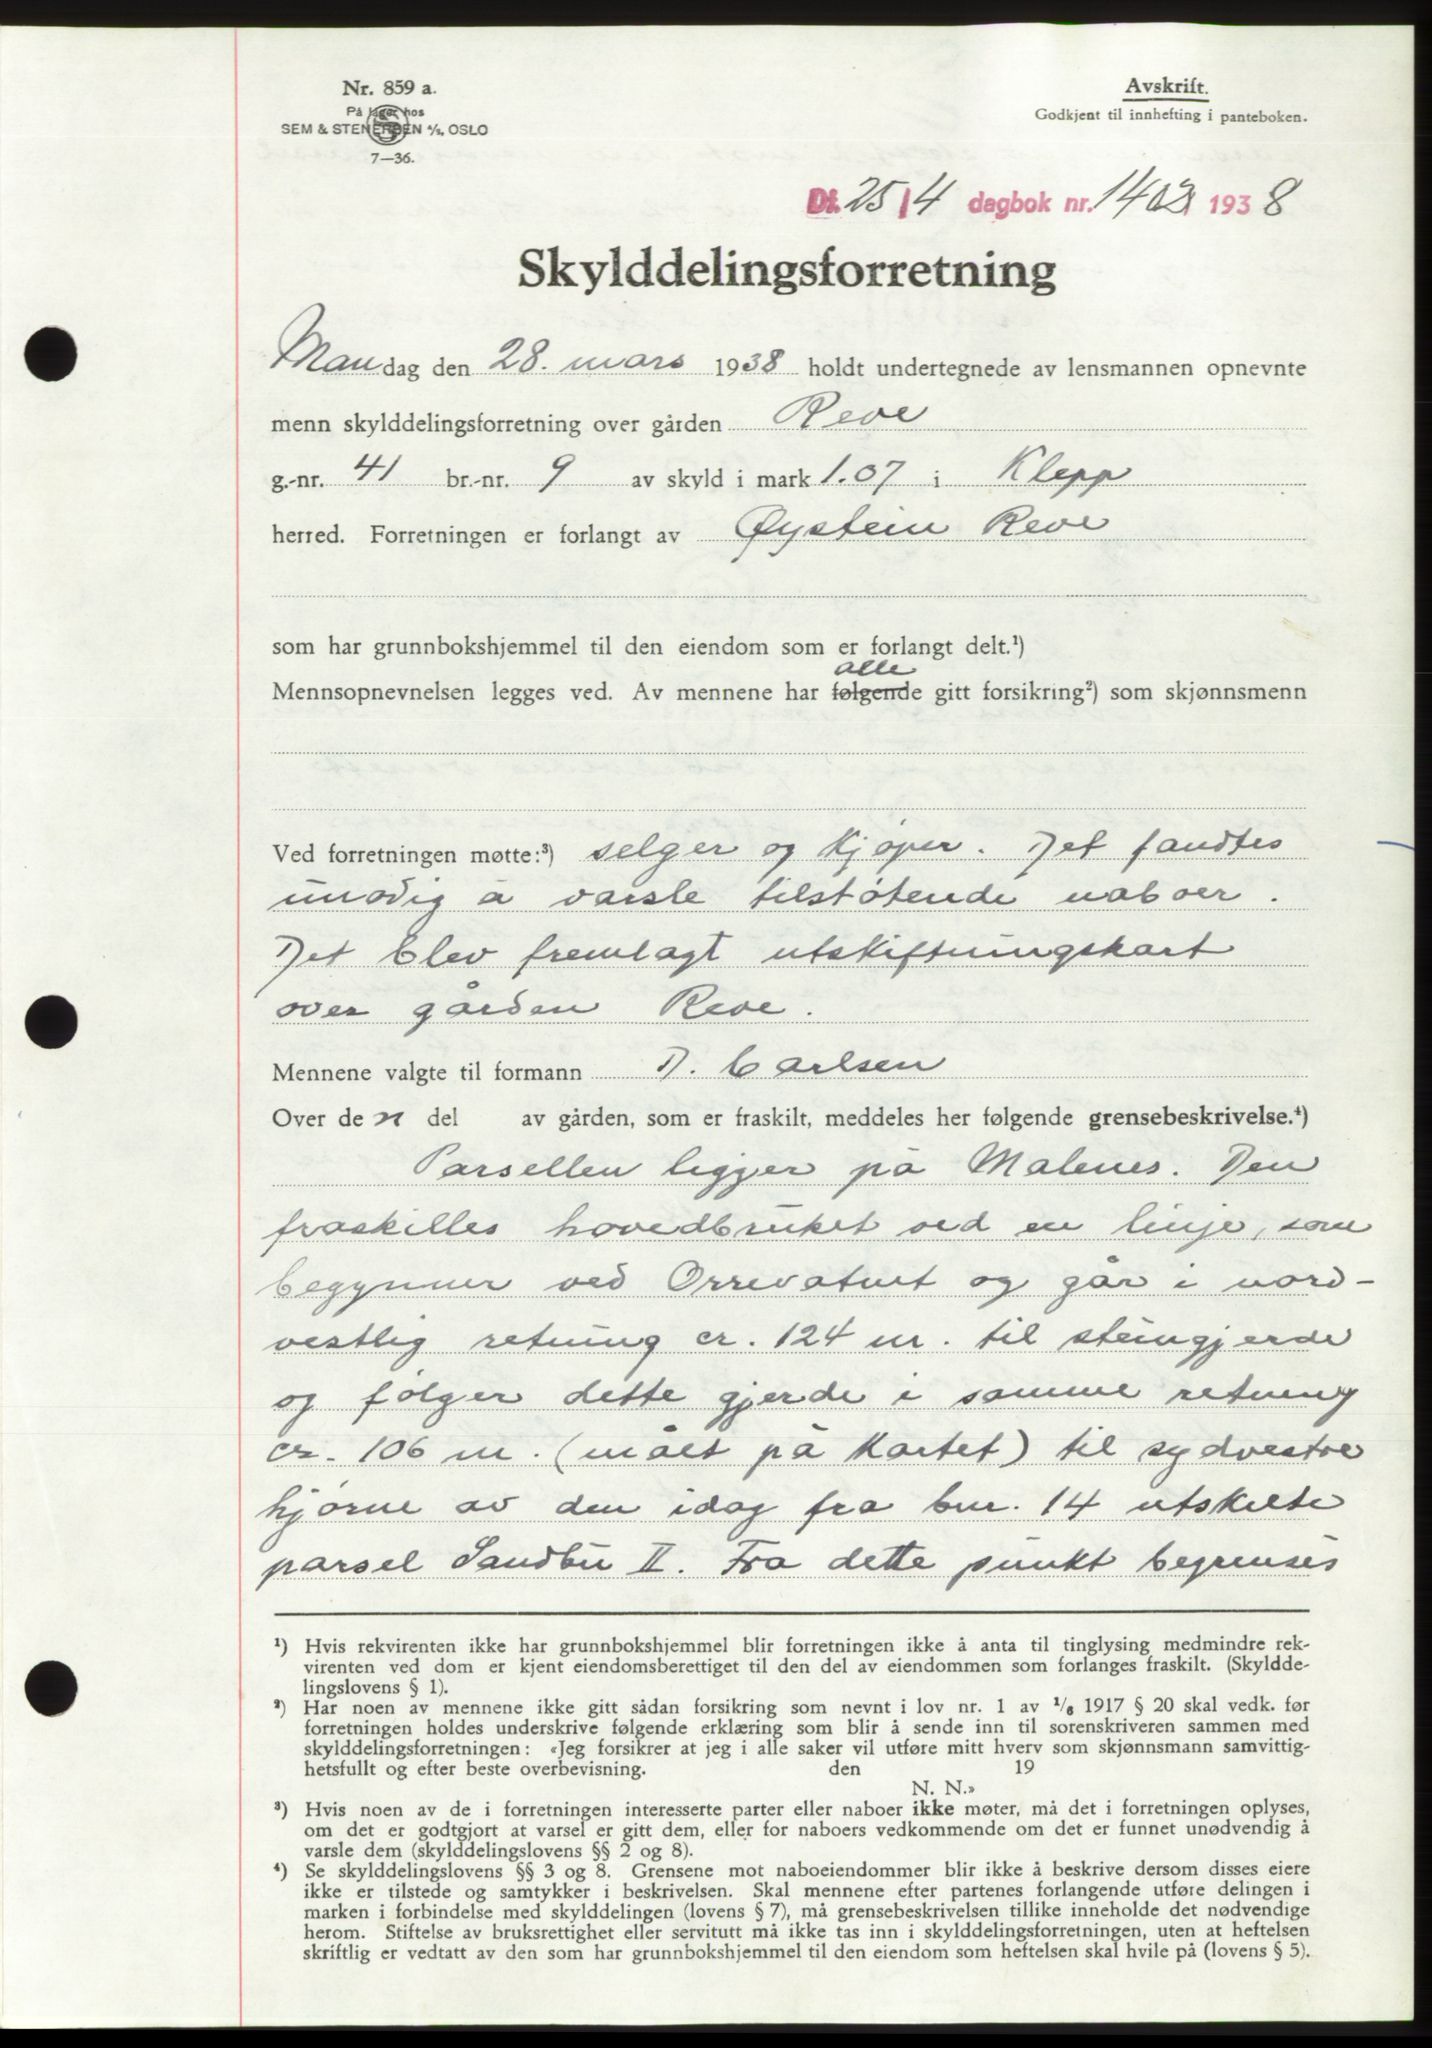 Nr. 859 a.
På lager hos
SEM & STENERSEN A/S, OSLO
7—36.
Avskrift.
Godkjent til innhefting i panteboken.
Df. 25/4 dagbok nr. 1403 1938
Skylddelingsforretning
Mandag den 28. mars 1938 holdt undertegnede av lensmannen opnevnte
menn skylddelingsforretning over gården Reve
g.-nr. 41 br.-nr. 9 av skyld i mark 1.07 i Klepp
herred. Forretningen er forlangt av Øystein Reve
som har grunnbokshjemmel til den eiendom som er forlangt delt.¹)
alle
Mennsopnevnelsen legges ved. Av mennene har følgende gitt forsikring²) som skjønnsmenn
Ved forretningen møtte:³) selger og kjøper. Det fandtes
unødig å varsle tilstøtende naboer.
Det blev fremlagt utskiftningskart
over gården Reve.
Mennene valgte til formann D. Carlsen
Over den del av gården, som er fraskilt, meddeles her følgende grensebeskrivelse.⁴)
Parsellen ligger på Malenes. Den
fraskilles hovedbruket ved en linje, som
begynner ved Orrevatnet og går i nord-
vestlig retning cr. 124 m. til steingjerde
og følger dette gjerde i samme retning
cr. 106 m. (målt på kartet) til sydvestre
hjørne av den idag fra bnr. 14 utskilte
parsel Sandbu II. Fra dette punkt begrenses
¹) Hvis rekvirenten ikke har grunnbokshjemmel blir forretningen ikke å anta til tinglysing medmindre rek-
virenten ved dom er kjent eiendomsberettiget til den del av eiendommen som forlanges fraskilt. (Skyldde-
lingslovens § 1).
²) Har noen av mennene ikke gitt sådan forsikring som nevnt i lov nr. 1 av 1/6 1917 § 20 skal vedk. før
forretningen holdes underskrive følgende erklæring som blir å sende inn til sorenskriveren sammen med
skylddelingsforretningen: «Jeg forsikrer at jeg i alle saker vil utføre mitt hverv som skjønnsmann samvittig-
hetsfullt og efter beste overbevisning. den 19
N. N.»
³) Hvis noen av de i forretningen interesserte parter eller naboer ikke møter, må det i forretningen oplyses,
om det er godtgjort at varsel er gitt dem, eller for naboers vedkommende om det er funnet unødvendig å
varsle dem (skylddelingslovens §§ 2 og 8).
⁴) Se skylddelingslovens §§ 3 og 8. Grensene mot naboeiendommer blir ikke å beskrive dersom disses eiere
ikke er tilstede og samtykker i beskrivelsen. Skal mennene efter partenes forlangende utføre delingen i
marken i forbindelse med skylddelingen (lovens § 7), må grensebeskrivelsen tillike inneholde det nødvendige
herom. Stiftelse av bruksrettighet eller servitutt må ikke tas inn i skylddelingsforretningen, uten at heftelsen
skriftlig er vedtatt av den som har grunnbokshjemmel til den eiendom som heftelsen skal hvile på (lovens § 5).